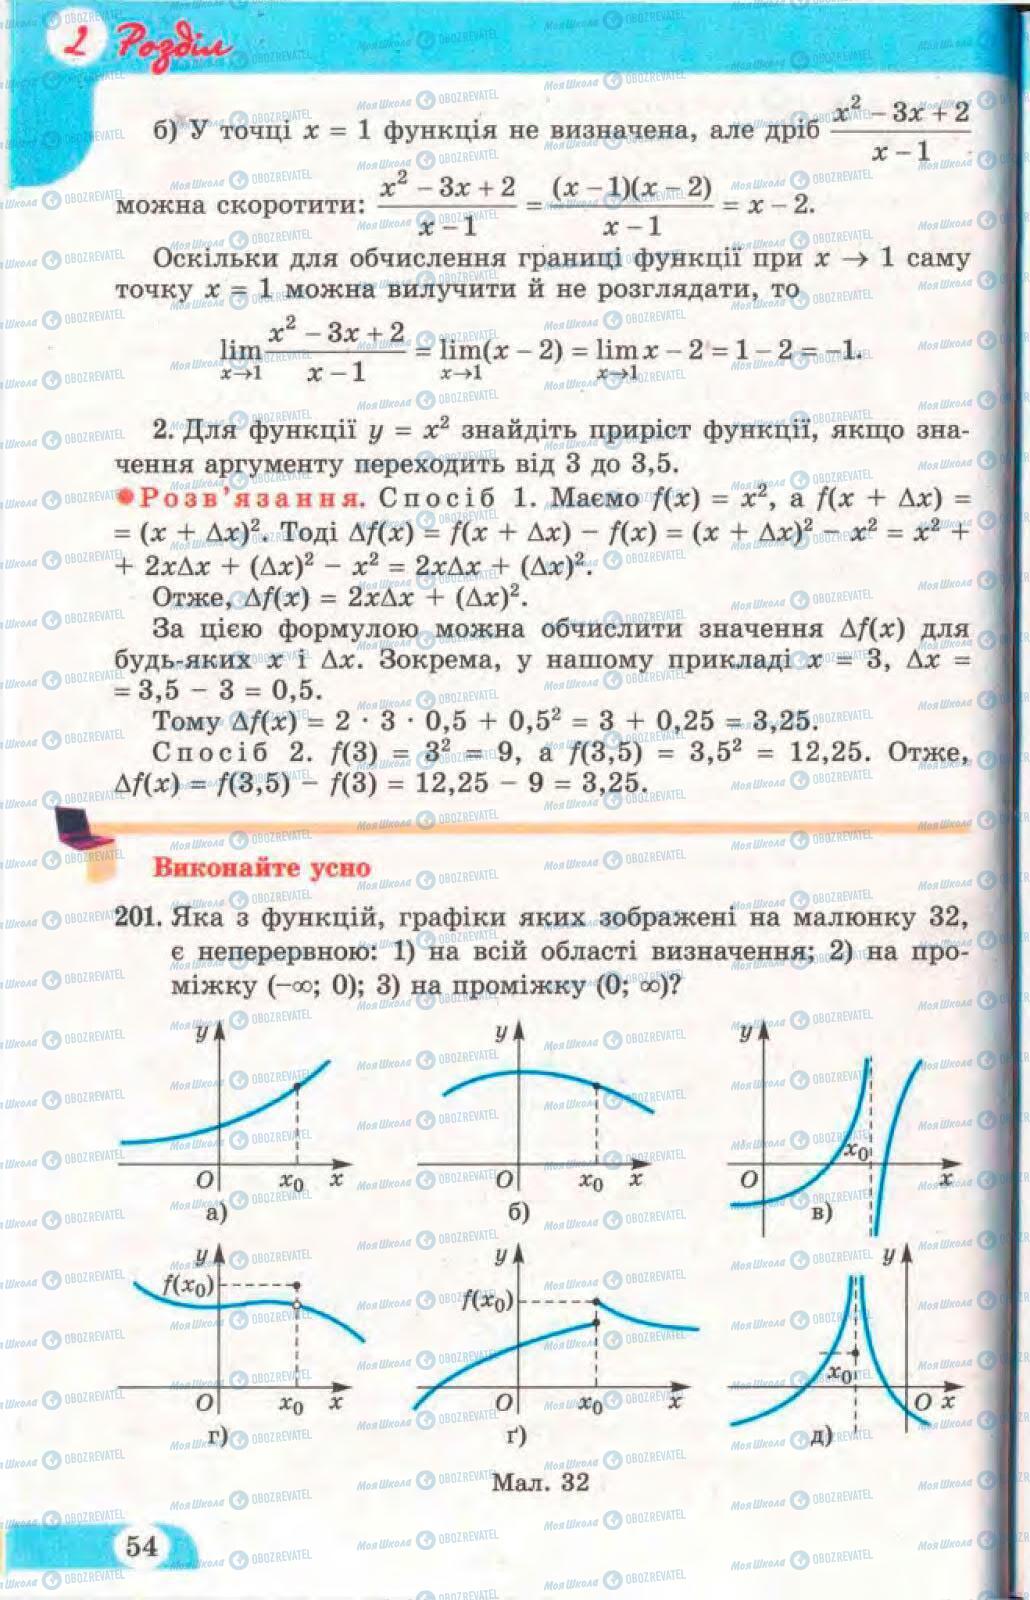 2 Розділ
б) У точці x = 1 функція не визначена, але дріб (x² − 3x + 2)/(x − 1)
можна скоротити: (x² − 3x + 2)/(x − 1) = ((x − 1)(x − 2))/(x − 1) = x − 2.
Оскільки для обчислення границі функції при x → 1 саму
точку x = 1 можна вилучити й не розглядати, то
lim x→1 (x² − 3x + 2)/(x − 1) = lim x→1 (x − 2) = lim x→1 x − 2 = 1 − 2 = −1.
2. Для функції y = x² знайдіть приріст функції, якщо зна-
чення аргументу переходить від 3 до 3,5.
● Розв’язання. Спосіб 1. Маємо f(x) = x², а f(x + Δx) =
= (x + Δx)². Тоді Δf(x) = f(x + Δx) − f(x) = (x + Δx)² − x² = x² +
+ 2xΔx + (Δx)² − x² = 2xΔx + (Δx)².
Отже, Δf(x) = 2xΔx + (Δx)².
За цією формулою можна обчислити значення Δf(x) для
будь-яких x і Δx. Зокрема, у нашому прикладі x = 3, Δx =
= 3,5 − 3 = 0,5.
Тому Δf(x) = 2 · 3 · 0,5 + 0,5² = 3 + 0,25 = 3,25.
Спосіб 2. f(3) = 3² = 9, а f(3,5) = 3,5² = 12,25. Отже,
Δf(x) = f(3,5) − f(3) = 12,25 − 9 = 3,25.
Виконайте усно
201. Яка з функцій, графіки яких зображені на малюнку 32,
є неперервною: 1) на всій області визначення; 2) на про-
міжку (−∞; 0); 3) на проміжку (0; ∞)?
y y y
x₀
O x₀ x O x₀ x O x
а) б) в)
y y y
f(x₀) f(x₀)
x₀
O x₀ x O x₀ x O x
г) ґ) д)
Мал. 32
54
Моя Школа OBOZREVATEL